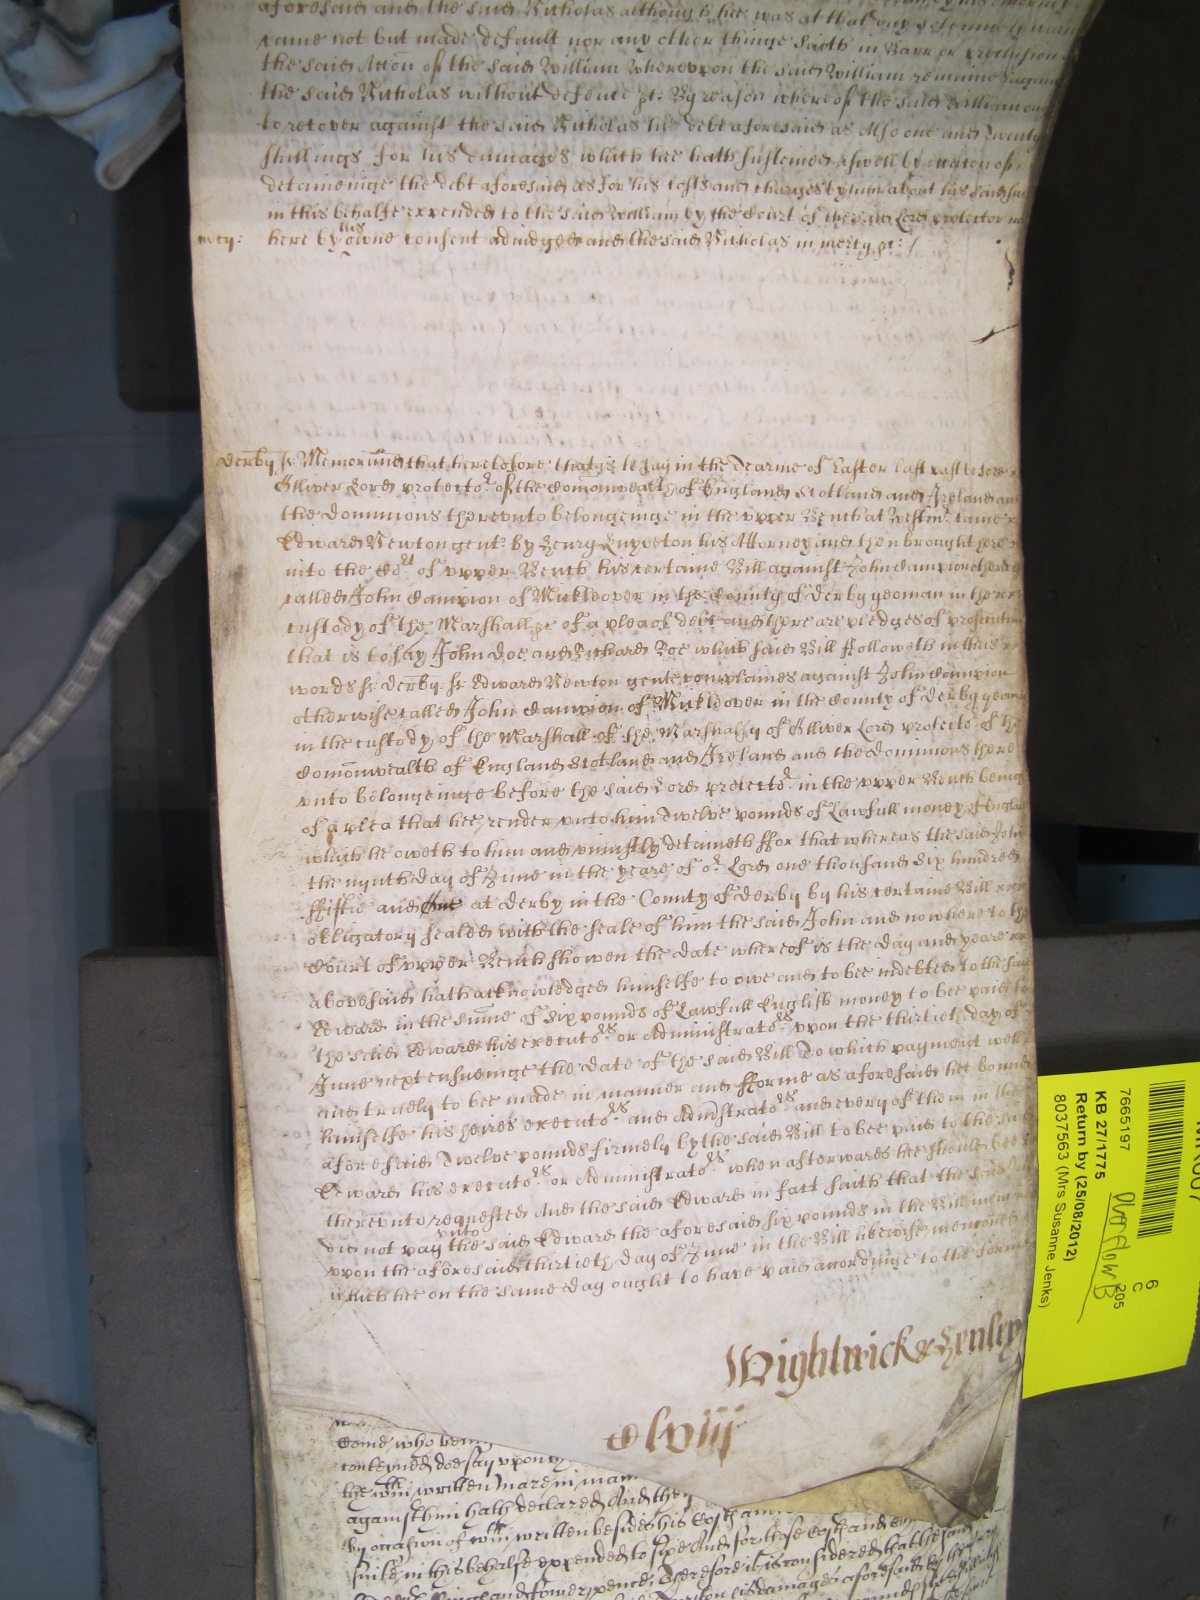 aforesaid and the said Nicholas although hee was at that day solemnely
came not but made default nor any other thinge saith in Barr or preclusion
the said Accon of the said William Wherevpon the said William remaines against
the said Nicholas without defence &c: By reason whereof the said William
to recover against the said Nicholas his debt aforesaid as Also one and twenty
shillings for his damages which hee hath susteined aswell by occasion of
deteineinge the debt aforesaid as for his costs and charges by him about his said suite
in this behalfe expended to the said William by the Court of the said Lord protector
mcy: here by his owne consent adiudged and the said Nicholas in mercy &c: /
Derby ss Memorand that heretofore that is to say in the Tearme of Easter last past before
Olliver Lord protector of the Comonwealth of England Scotland and Ireland and
the dominions therevnto belongeinge in the vpper Bench at Westmr came
Edward Newton gent by Henry Knyveton his Attorney and then brought here
into the Cort of vpper Bench his certaine Bill against John Campion otherwise
called John Campion of Mickleover in the County of Derby yeoman in the
custody of the Marshall &c of a plea of debt and there are pledges of prosecuting
that is to say John Doe and Richard Roe which said Bill followeth in theis
words ss Derby ss Edward Newton gent complaines against John Campion
otherwise called John Campion of Mickleover in the County of Derby yeoman
in the custody of the Marshall of the Marshalsy of Olliver Lord protector of the
Comonwealth of England Scotland and Ireland and the dominions there
vnto belongeinge before the said Lord protector in the vpper Bench being
of a plea that hee render vnto him Twelve pounds of Lawfull money of England
which he oweth to him and vniustly detaineth ffor that whereas the said John
the nynth day of June in the yeare of or Lord one thousand six hundred
ffiftie and at Derby in the County of Derby by his certaine Bill
obligatory sealed with the seale of him the said John and now here to the
Court of vpper Bench showen the date whereof is the day and yeare
abovesaid hath acknowledged himselfe to owe and to bee indebted to the said
Edward in the sume of six pounds of Lawfull English money to bee paid to
the said Edward his executors or Administrators vpon the thirtieth day of
June next ensueinge the date of the said Bill To which payment well
and truely to bee made in manner and fforme as aforesaid hee bound
himselfe his heires executors and Administrators and every of them in the
aforesaid Twelve pounds firmely by the said Bill to bee paid to the said
Edward his executors or Administrators when afterwards hee should bee
therevnto requested And the said Edward in fact saith that the said John
did not pay vnto the said Edward the aforesaid six pounds in the Bill
vpon the aforesaid thirtieth day of June in the Bill likewise menconed
which hee on the same day ought to have paid accordinge to the forme
Wightwick & Henley
Clviij
Come who being
conteyned doe say vpon
the wthin written Mare in man
against him hath declared And they
by occasion of wthin written besides his Costs
suite in this behalfe expended to sixe and for those Costs and
and fower pence, Therefore it is considered that the said
damages aforesaid by the
7665197
KB 27/1775
Return by (25/08/2012)
8037563 (Mrs Susanne Jenks)
6
C
205
Overflow B